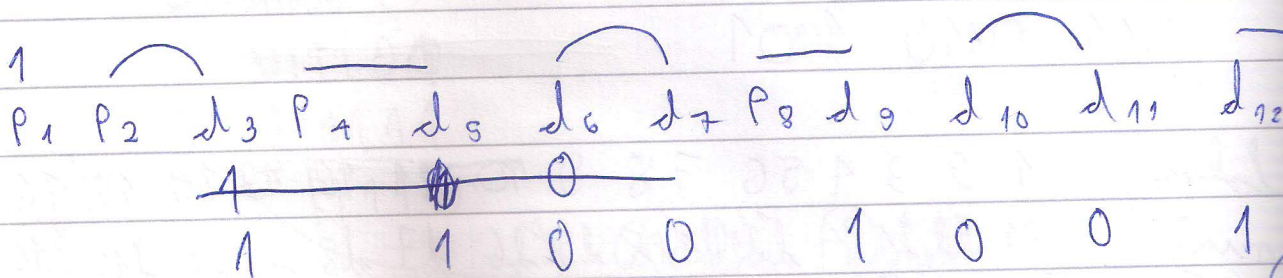 1
P1 P2 d3 P4 d5 d6 d7 P8 d9 d10 d11 d12
1 0
1 1 0 0 1 0 0 1